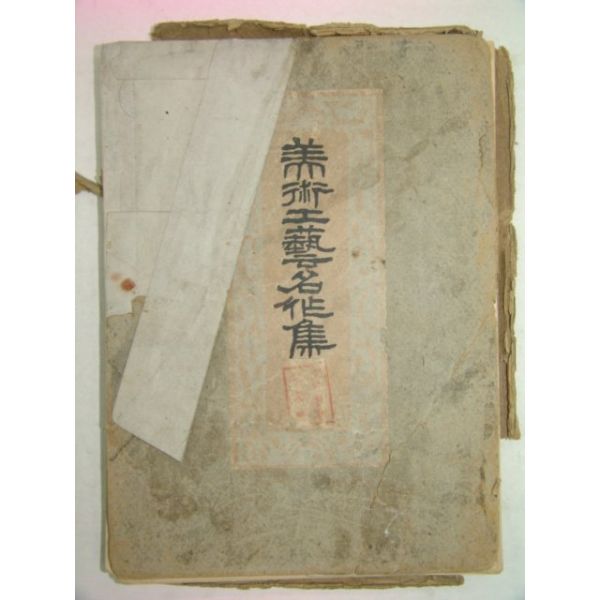 美術工藝名作集